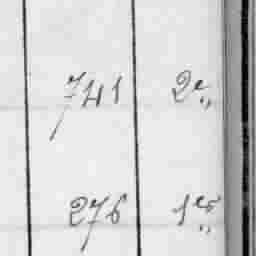 741 2e„
276 1er„